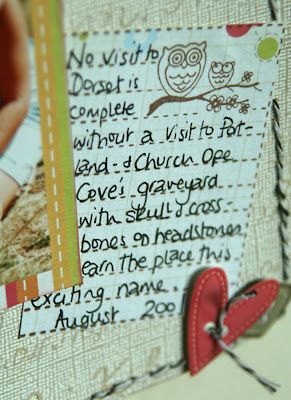 No visit to
Dorset is
complete
without a visit to Port-
land - & Church Ope
Cove's graveyard
with skull & cross-
bones on headstones
earn the place this
exciting name.
August 200